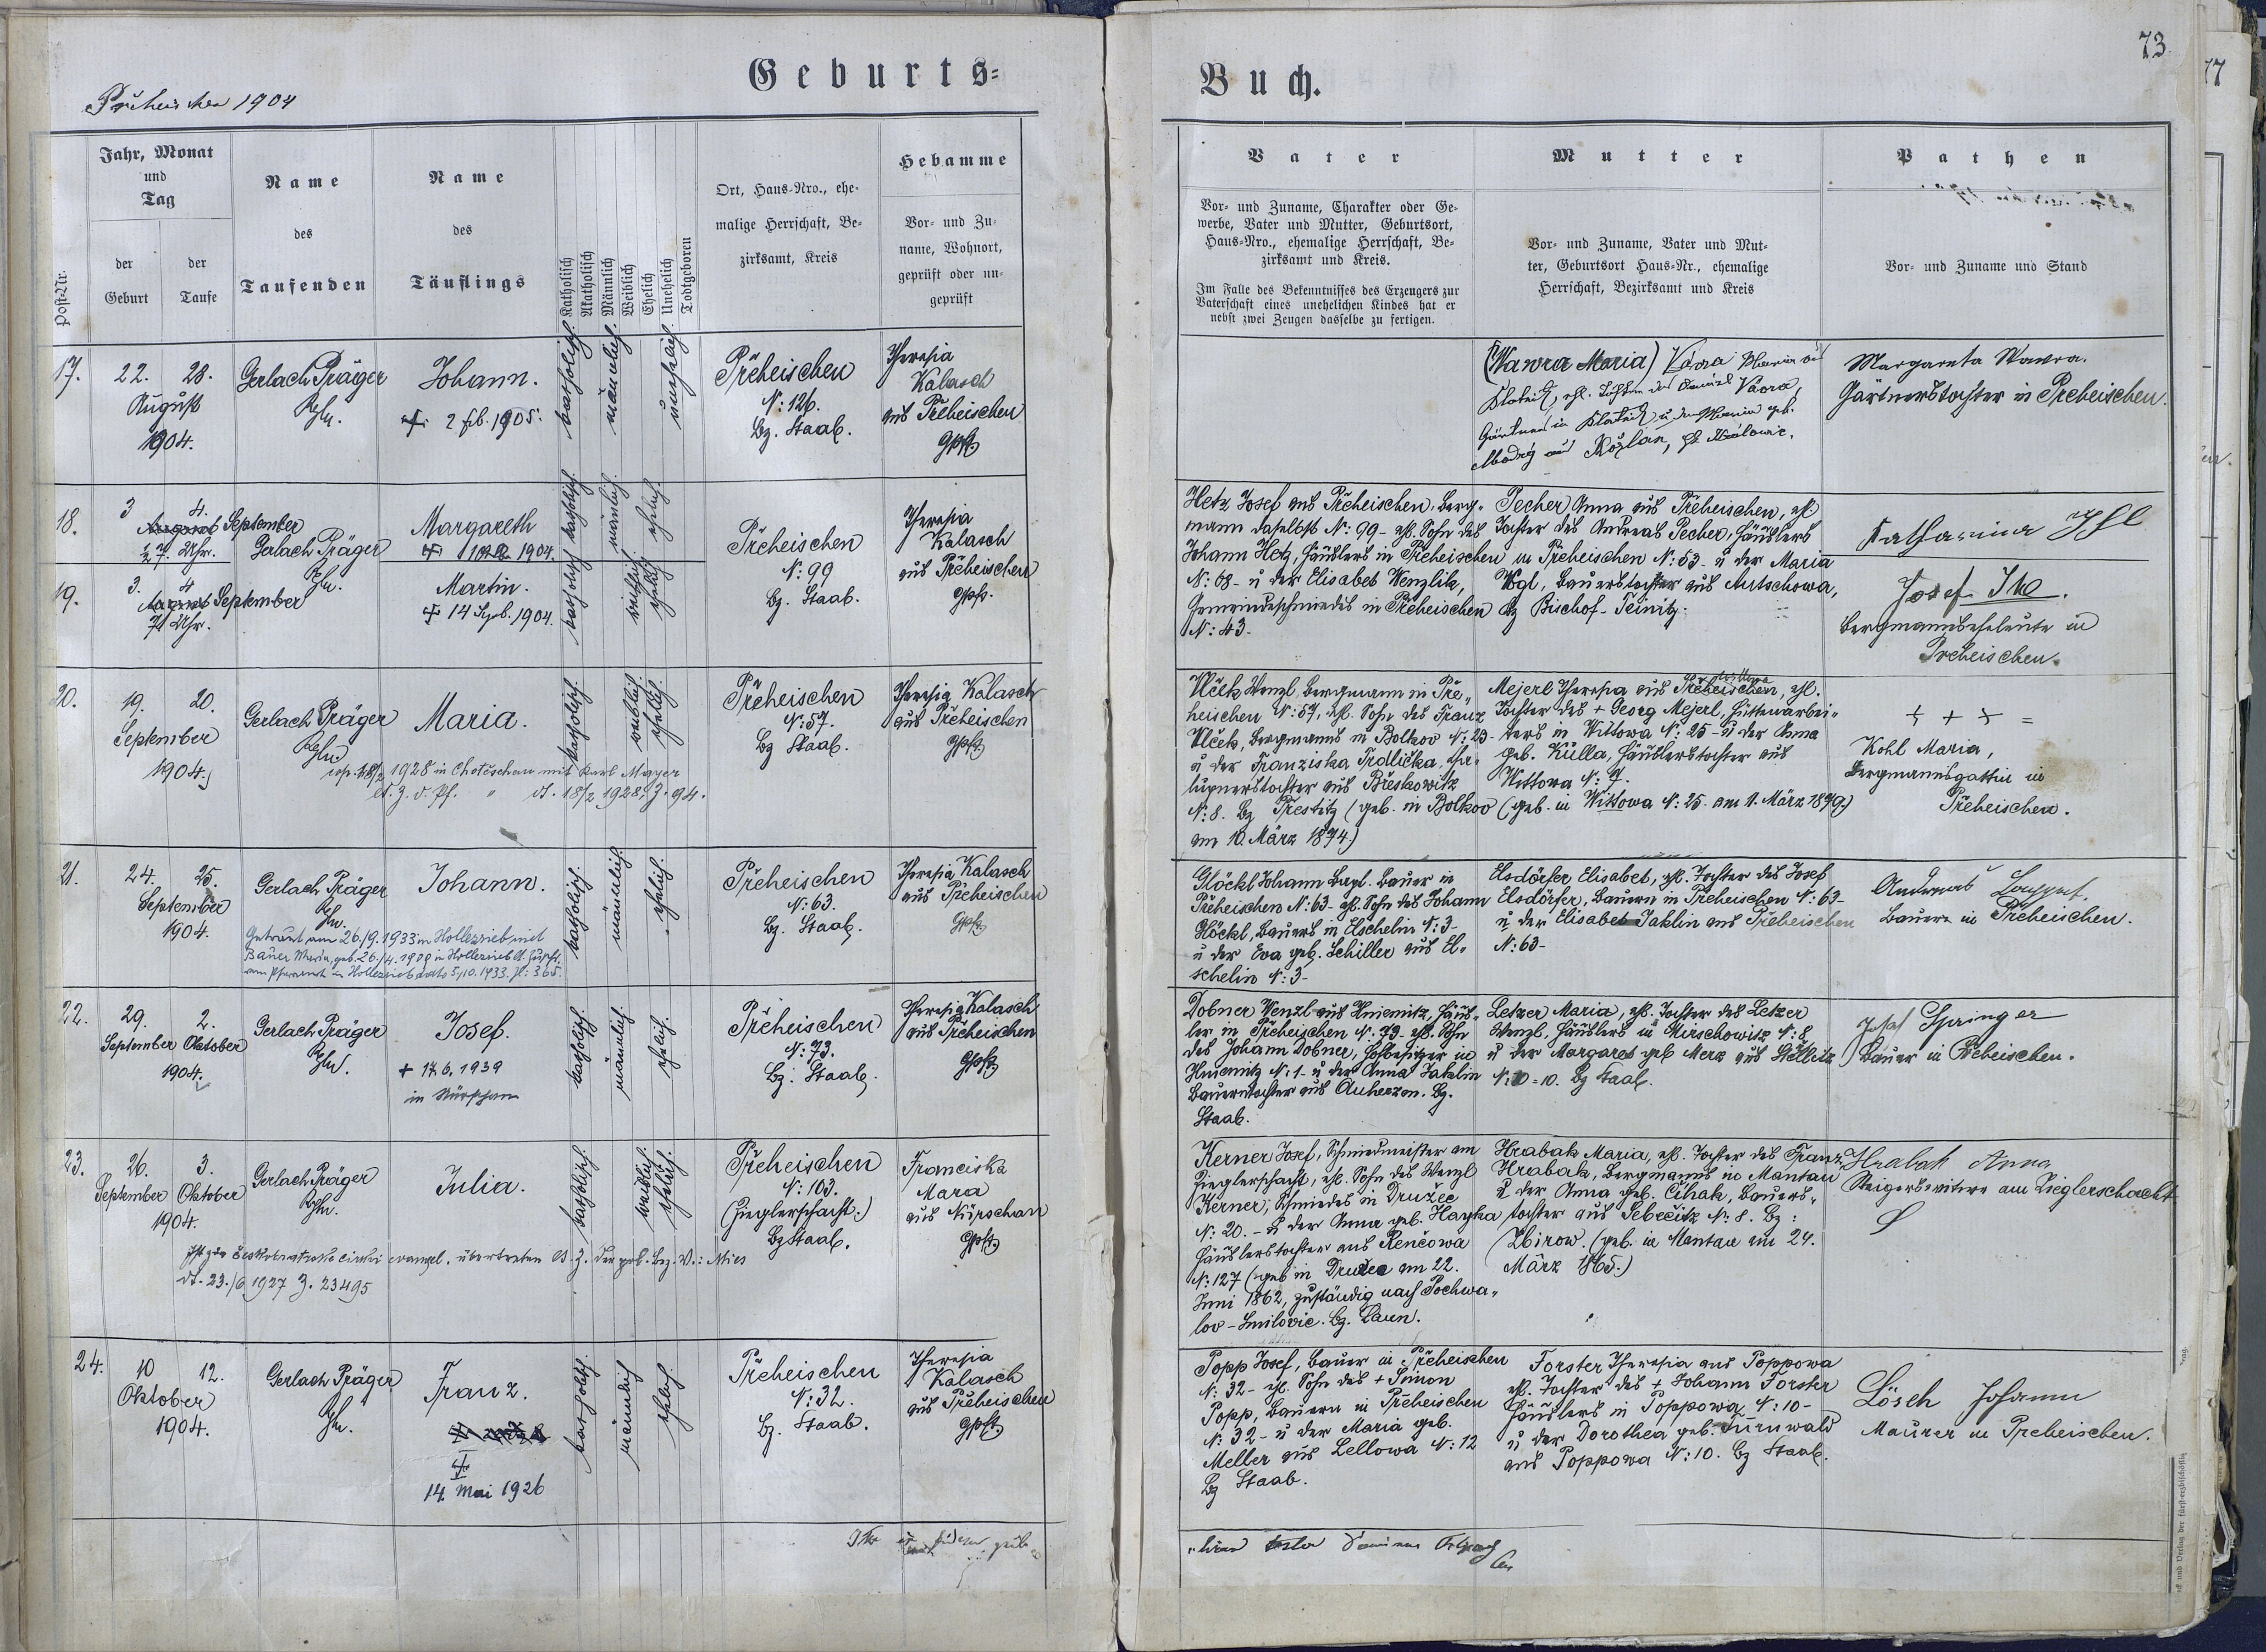 Geburts=
Přeheischen 1904
Jahr, Monat
und
Tag
Name
des
Taufenden
Name
des
Täuflings
Ort, Haus-Nro., ehe-
malige Herrschaft, Be-
zirksamt, Kreis
Hebamme
Vor- und Zu-
name, Wohnort,
geprüft oder un-
geprüft
Post-Nr.
der
Geburt
der
Taufe
Katholisch
Akatholisch
Männlich
Weiblich
Ehelich
Unehelich
Todtgeboren
17.
22. 28.
August
1904.
Gerlach Präger
Johann.
2 Feb. 1905.
katholisch.
männlich.
unehelich.
Přeheischen
N: 126.
Bz. Staab.
Theresia
Kalasch
aus Přeheischen
gpft
18.
3 4.
August September
½ 7. Uhr.
Gerlach Präger
Margareth
1904.
katholisch
männlich.
ehelich.
Přeheischen
N: 99
Bz. Staab.
Theresia
Kalasch
aus Přeheischen
gpft.
19.
3. 4
August September
7 Uhr.
Martin.
14 Spb. 1904.
katholisch
weiblich
ehelich
20.
19. 20.
September
1904.
Gerlach Präger
Maria.
cop. 18/2 1928 in Choteschau mit Karl Mayer
lt. Z. d. Pf. " dt. 18/2 1928, Z. 94.
katholisch.
weiblich.
ehelich.
Přeheischen
N: 57.
Bz Staab.
Theresia Kalasch
aus Přeheischen
gpft
21.
24. 25.
September
1904.
Gerlach Präger
Johann.
Getraut am 26./9. 1933 in Hollezrieb mit
Bauer Maria, geb. 26./4. 1909 in Hollezrieb
am Pfarramt in Hollezrieb dato 5/10. 1933. Zl: 365.
katholisch.
männlich.
ehelich.
Přeheischen
N: 63.
Bz. Staab.
Theresia Kalasch
aus Přeheischen
gpft
22.
29. 2.
September Oktober
1904.
Gerlach Präger
Josef.
+ 17. 6. 1939
in Nürschan
katholisch.
männlich.
ehelich.
Přeheischen
N: 73.
Bz. Staab.
Theresia Kalasch
aus Přeheischen
gpft
23.
26. 3.
September Oktober
1904.
Gerlach Präger
Julia.
evangel. übertreten lt. Z. der pol. Bez. V.: Mies
dt. 23./6 1927 Z. 23495
katholisch.
weiblich.
ehelich.
Přeheischen
N: 103.
(Zieglerschacht.)
Bz Staab.
Franciska
Mara
aus Nürschan
gpft
24.
10 12.
Oktober
1904.
Gerlach Präger
Franz.
14. Mai 1926
katholisch.
männlich
ehelich.
Přeheischen
N: 32.
Bz. Staab.
Theresia
Kalasch
aus Přeheischen
gpft.
73
77
Buch.
Vater
Vor- und Zuname, Charakter oder Ge-
werbe, Vater und Mutter, Geburtsort,
Haus-Nro., ehemalige Herrschaft, Be-
zirksamt und Kreis.
Im Falle des Bekenntnisses des Erzeugers zur
Vaterschaft eines unehelichen Kindes hat er
nebst zwei Zeugen dasselbe zu fertigen.
Mutter
Vor- und Zuname, Vater und Mut-
ter, Geburtsort Haus-Nr., ehemalige
Herrschaft, Bezirksamt und Kreis
Pathen
Vor- und Zuname und Stand
(Wawra Maria) Vávra Maria aus
ehl. Tochter des Vávra,
Gärtners in u. der Maria geb.
Margareta Wawra.
Gärtnerstochter in Přeheischen.
Hetz Josef aus Přeheischen, Berg-
mann daselbst N: 99 - ehl. Sohn des
Johann Hetz, Häuslers in Přeheischen
N: 68 - u. der Elisabet Wenzlik,
Gemeindeschmiedes in Přeheischen
N: 43.
Pecher Anna aus Přeheischen, ehl.
Tochter des Andreas Pecher, Häuslers
in Přeheischen N: 53 - u. der Maria
Vogl, Bauerstochter aus Autschowa,
Bz Bischof-Teinitz.
Katharina Ihl
Josef Ihl.
Bergmannseheleute in
Přeheischen.
Vlček Wenzl, Bergmann in Pře-
heischen N: 57, ehl. Sohn des Franz
Vlček, Bergmanns in Bolkov N: 23 -
u. der Franziska Trdlička, Cha-
lupnerstochter aus Břeskowitz
N: 8. Bz Přestitz (geb. in Bolkov
am 10. März 1874)
Mejerl Theresia aus Přeheischen, ehl.
Tochter des + Georg Mejerl, Hüttenarbei-
ters in Wittowa N: 25 - u. der Anna
geb. Kulla, Häuslerstochter aus
Wittowa N: 7.
(geb. in Wittowa N: 25. am 1. März 1879.)
+ + + =
Kohl Maria,
Bergmannsgattin in
Přeheischen.
Glöckl Johann Bapt. Bauer in
Přeheischen N: 63 - ehl. Sohn des Johann
Glöckl, Bauers in Elschelin N: 3 -
u. der Eva geb. Schiller aus El-
schelin N: 3 -
Elsdörfer Elisabet, ehl. Tochter des Josef
Elsdörfer, Bauern in Přeheischen N: 63 -
u. der Elisabet Jaklin aus Přeheischen
N: 63 -
Andreas
Bauer in Přeheischen.
Dobner Wenzl aus Hniemitz, Häus-
ler in Přeheischen N: 73 ehl. Sohn
des Johann Dobner, Hofbesitzer in
Hniemitz N: 1 - u. der Anna Jakelin
Bauerntochter aus Auherzen. Bz.
Staab.
Letzer Maria, ehl. Tochter des Letzer
Wenzl, Häuslers in Mirschowitz N: 8
u. der Margaret geb Merz aus Stöllitz
N: 10 = 10. Bz Staab.
Josef Springer
Bauer in Přeheischen.
Kerner Josef, Schmiedmeister am
Zieglerschacht, ehl. Sohn des Wenzl
Kerner, Schmiedes in Družec
N: 20. - u. der Anna geb. Hayka
Häuslerstochter aus Renčowa
N: 127 (geb in Družec am 22.
Juni 1862, zuständig nach Pochwa-
lov - Smilovic. Bz. Laun.
Hrabak Maria, ehl. Tochter des Franz
Hrabak, Bergmanns in Mantau
u. der Anna geb. Cihak, Bauers-
tochter aus Sebečitz N: 8. Bz:
Zbirow. (geb. in Mantau am 24.
März 1865.)
Hrabak Anna
Steigerswitwe am Zieglerschacht
Popp Josef, Bauer in Přeheischen
N: 32 - ehl. Sohn des + Simon
Popp, Bauern in Přeheischen
N: 32 - u. der Maria geb.
Meller aus Lellowa N: 12
Bz Staab.
Forster Theresia aus Poppowa
ehl. Tochter des + Johann Forster
Häuslers in Poppowa N: 10 -
u. der Dorothea geb. Türnwald
aus Poppowa N: 10. Bz Staab.
Lösch Johann
Maurer in Přeheischen.